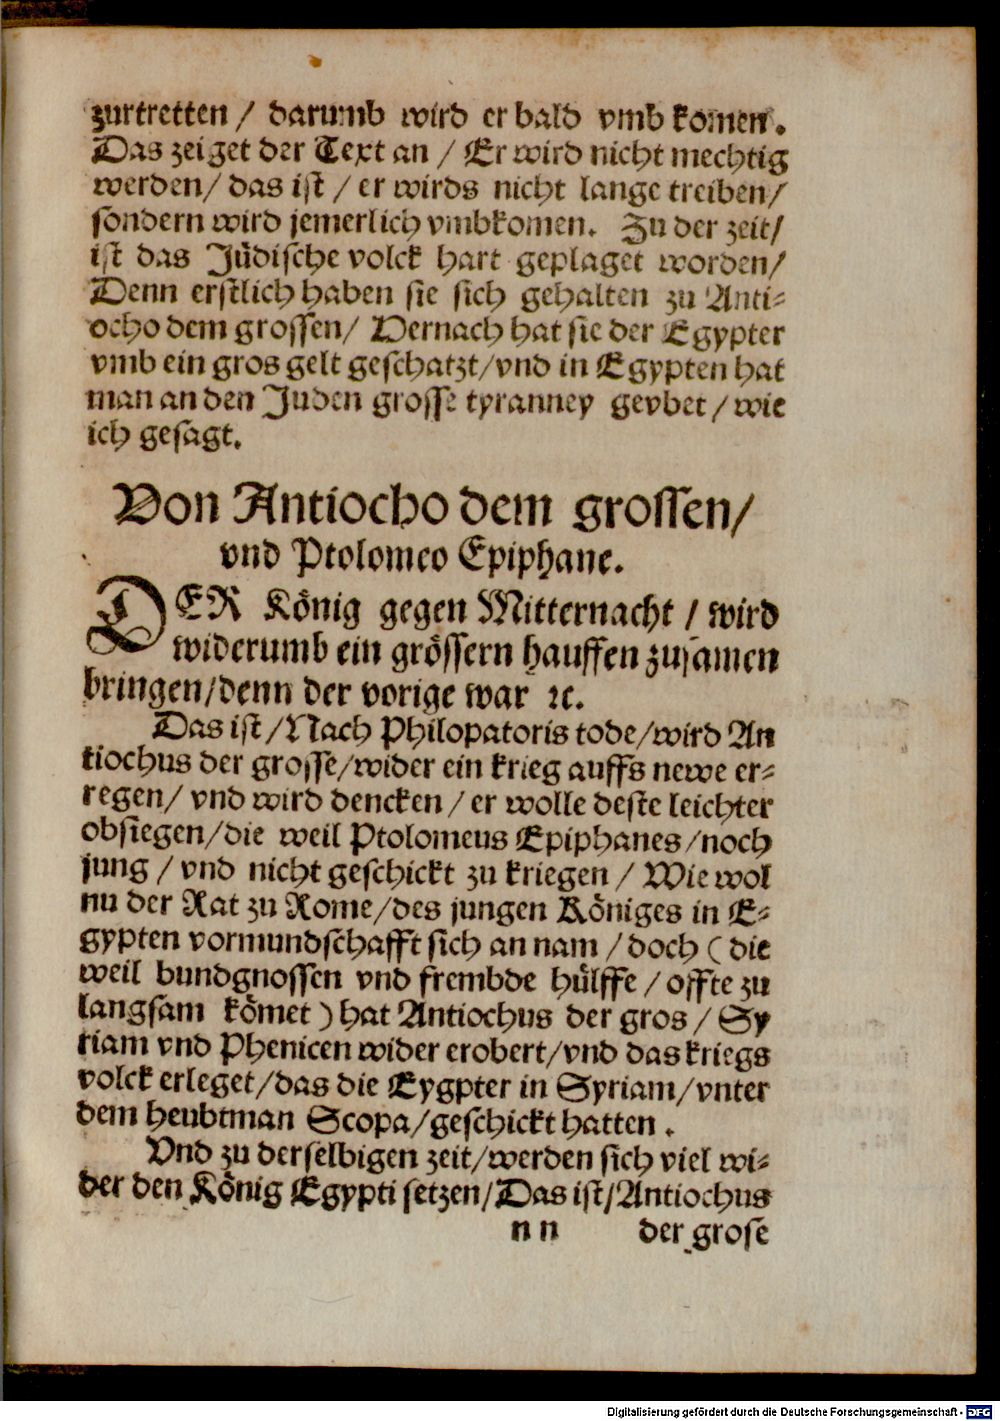 zurtretten / darumb wird er bald vmb komen.
Das zeiget der Text an / Er wird nicht mechtig
werden/ das ist / er wirds nicht lange treiben/
sondern wird jemerlich vmbkomen. Zu der zeit/
ist das Jüdische volck hart geplaget worden/
Denn erstlich haben sie sich gehalten zu Anti-
ocho dem grossen/ Dernach hat sie der Egypter
vmb ein gros gelt geschatzt/vnd in Egypten hat
man an den Juden grosse tyranney gevbet / wie
ich gesagt.
Von Antiocho dem grossen/
vnd Ptolomeo Epiphane.
DER König gegen Mitternacht / wird
widerumb ein grössern hauffen zusamen
bringen/denn der vorige war ꝛc.
Das ist/Nach Philopatoris tode/wird An
tiochus der grosse/wider ein krieg auffs newe er-
regen/ vnd wird dencken / er wolle deste leichter
obsiegen/die weil Ptolomeus Epiphanes/noch
jung / vnd nicht geschickt zu kriegen / Wie wol
nu der Rat zu Rome/des jungen Königes in E-
gypten vormundschafft sich an nam / doch ( die
weil bundgnossen vnd frembde hülffe / offte zu
langsam kömet ) hat Antiochus der gros / Sy
riam vnd Phenicen wider erobert/vnd das kriegs
volck erleget/das die Eygpter in Syriam/vnter
dem heubtman Scopa/geschickt hatten .
Vnd zu derselbigen zeit/werden sich viel wi-
der den König Egypti setzen/Das ist/Antiochus
n n der grose
Digitalisierung gefördert durch die Deutsche Forschungsgemeinschaft - DFG